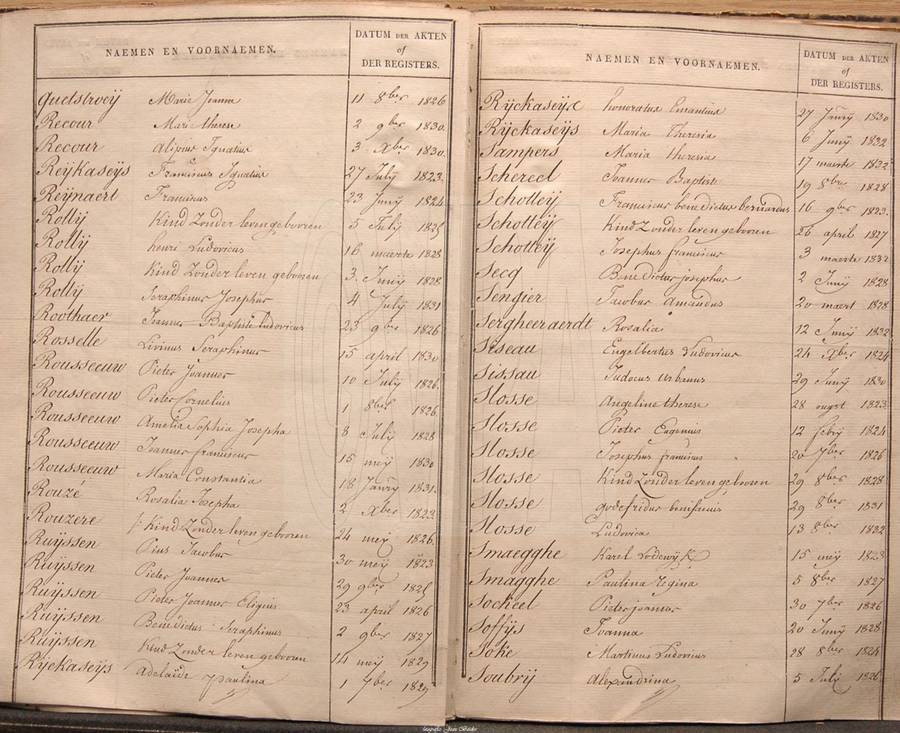 NAEMEN EN VOORNAEMEN. DATUM DER AKTEN of DER REGISTERS.
Quetstroeij Marie Jeanne 11 8ber 1826
Recour Marie theres 2 9ber 1830
Recour Alipius Ignatius 3 Xber 1830
Reijkaseijs Franciscus Ignatius 27 July 1823
Reijnaert Franciscus 23 Junij 1824
Rollij Kind Zonder leven gebooren 5 July 1825
Rollij henri Ludovicus 16 maerte 1828
Rollij Kind Zonder leven gebooren 3 Junij 1828
Rollij Seraphinus Josephus 4 July 1831
Roothaer Joannes Baptiste Ludovicus 23 9ber 1826
Rosselle Livinus Seraphinus 15 april 1830
Rousseeuw Pieter Joannes 10 July 1826
Rousseeuw Pieter Cornelius 1 8ber 1826
Rousseeuw Amelia Sophia Josepha 8 July 1828
Rousseeuw Joannes franciscus 15 meij 1830
Rousseeuw Maria Constantia 18 Janrij 1831
Rouzé Rosalia Josepha 2 Xber 1823
Rouzere Kind Zonder leven gebooren 24 meij 1826
Ruijssen Pius Jacobus 30 meij 1823
Ruijssen Pieter Joannes 29 9ber 1825
Ruijssen Pieter Joannes Eligius 23 april 1826
Ruijssen Benedictus Seraphinus 2 9ber 1827
Ruijssen Kind Zonder leven gebooren 14 meij 1829
Rijckaseijs Adelaïde Paulina 1 7ber 1829
NAEMEN EN VOORNAEMEN. DATUM DER AKTEN of DER REGISTERS.
Rijckaseijs honoratus 27 Janrij 1830
Rijckaseijs Maria Theresia 6 Junij 1832
Sampers Maria theresia 17 maerte 1832
Schereel Joannes Baptiste 19 8ber 1828
Schotteij Franciscus benedictus bernardus 16 9ber 1823
Schotteij Kind Zonder leven gebooren 26 april 1827
Schotteij Josephus franciscus 3 maerte 1832
Secq Benedictus josephus 2 Junij 1828
Sengier Jacobus Amandus 20 maert 1828
Sergheeraerdt Rosalia 12 Junij 1832
Siseau Engelbertus Ludovicus 24 Xber 1824
Sissau Judocus urbanus 29 Junij 1830
Slosse Angeline therese 28 ougst 1823
Slosse Pieter Eugenius 12 febrij 1824
Slosse Josephus franciscus 20 7ber 1826
Slosse Kind Zonder leven gebooren 29 8ber 1828
Slosse godefridus 29 8ber 1831
Slosse Ludovica 13 8ber 1832
Smaegghe Karel Lodewijk 15 meij 1823
Smagghe Paulina Regina 5 8ber 1827
Sockeel Pieter joannes 30 7ber 1826
Soffijs Joanna 20 Junij 1828
Soke Martinus Ludovicus 28 8ber 1824
Soubrij Alexandrina 5 July 1826